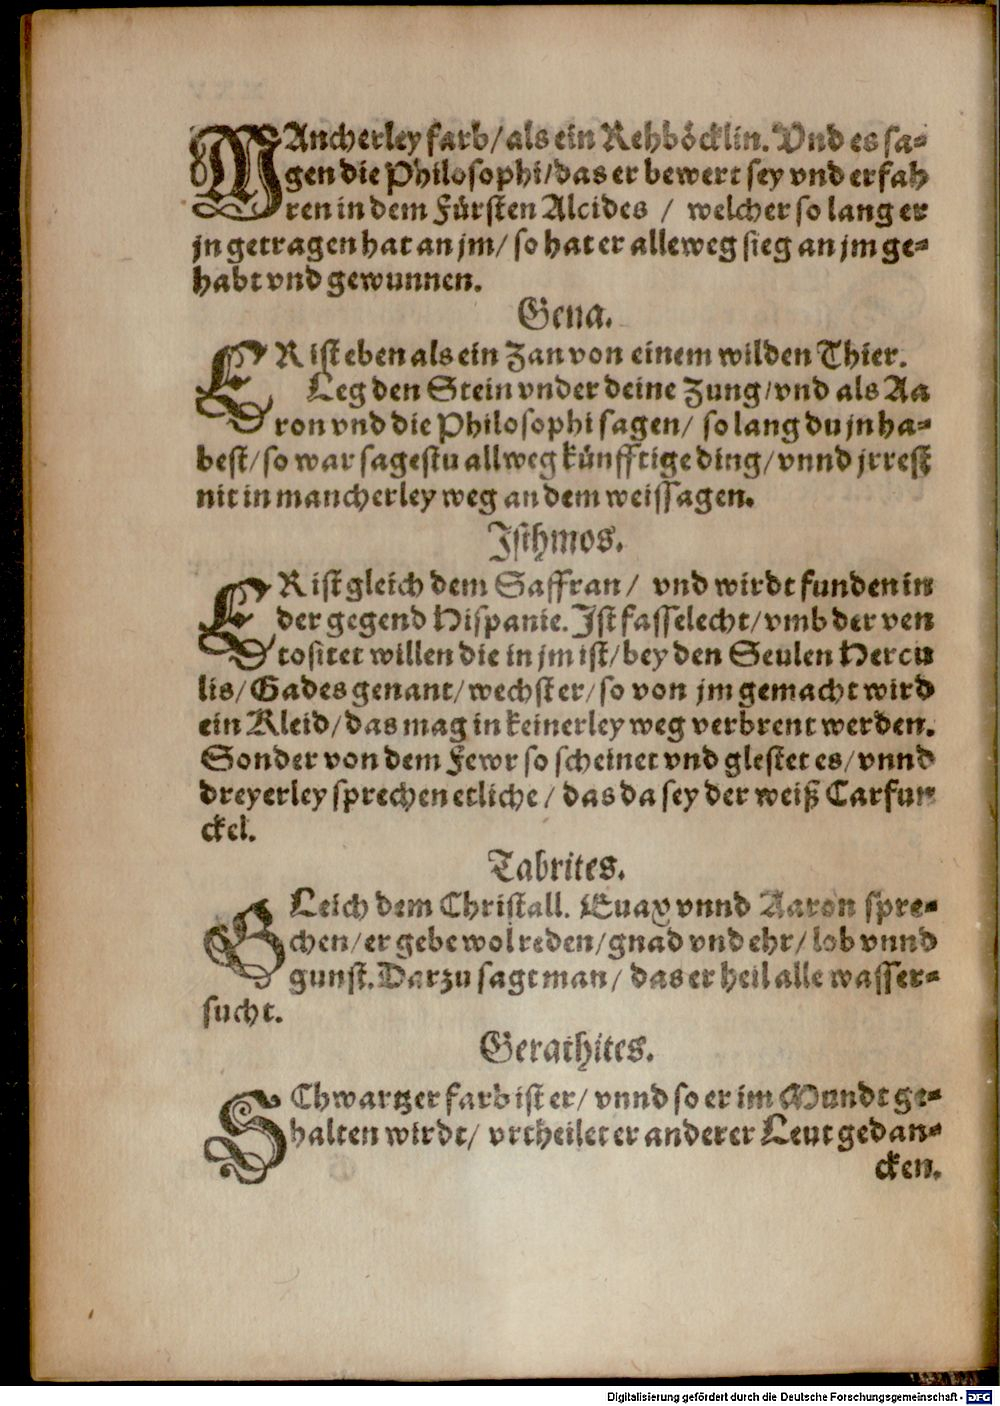 MAncherley farb/ als ein Rehböcklin. Vnd es sa-
gen die Philosophi/ das er bewert sey vnd erfah
ren in dem Fürsten Alcides / welcher so lang er
jn getragen hat an jm/ so hat er alleweg sieg an jm ge-
habt vnd gewunnen.
Gena.
ER ist eben als ein Zan von einem wilden Thier.
Leg den Stein vnder deine Zung/ vnd als Aa
ron vnd die Philosophi sagen/ so lang du jn ha-
best/ so war sagestu allweg künfftige ding/ vnnd jrrest
nit in mancherley weg an dem weissagen.
Isthmos.
ER ist gleich dem Saffran/ vnd wirdt funden in
der gegend Hispanie. Ist fasselecht/ vmb der ven
tositet willen die in jm ist/ bey den Seulen Hercu
lis/ Gades genant/ wechst er/ so von jm gemacht wird
ein Kleid/ das mag in keinerley weg verbrent werden.
Sonder von dem Fewr so scheinet vnd glestet es/ vnnd
dreyerley sprechen etliche/ das da sey der weiß Carfun
ckel.
Tabrites.
GLeich dem Christall. Euax vnnd Aaron spre-
chen/ er gebe wol reden/ gnad vnd ehr/ lob vnnd
gunst. Darzu sagt man/ das er heil alle wasser-
sucht.
Gerathites.
SChwartzer farb ist er/ vnnd so er im Mundt ge-
halten wirdt/ vrtheilet er anderer Leut gedan-
cken.
Digitalisierung gefördert durch die Deutsche Forschungsgemeinschaft - DFG